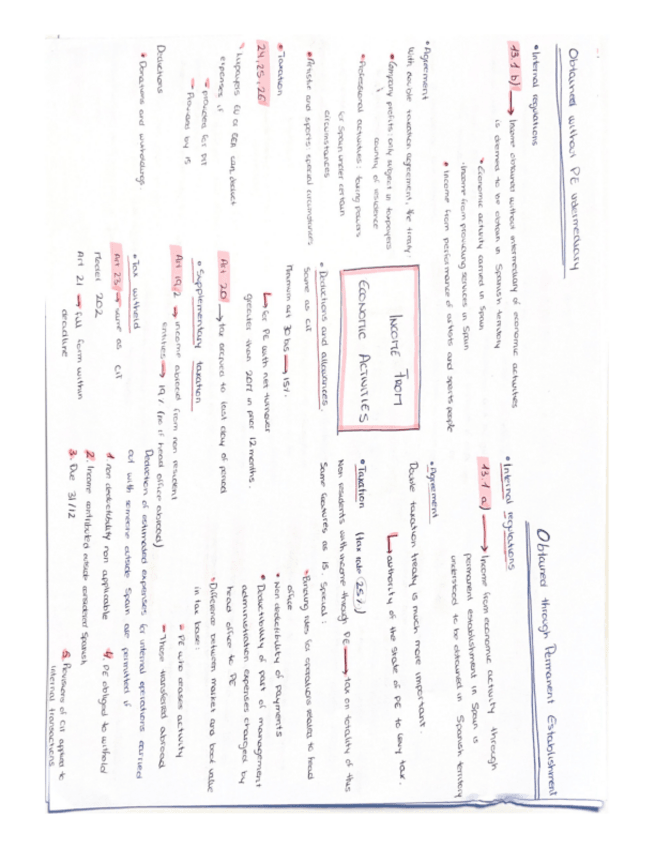 Obtained without PE intermediary
• Internal regulations
13.1 b) → Income obtained without intermediary of economic activities
is deemed to be obtain in Spanish territory
• Economic activity carried in Spain
· Income from providing services in Spain
• Income from performance of artists and sports people
• Agreement
With double taxation agreement, the treaty:
• Company profits: only subject in taxpayers
country of residence
• Professional activities: taxing powers
for Spain under certain
circumstances
• Artistic and sports: special circumstances
• Taxation
24, 25, 26
• Taxpayers EU or EEA can deduct
expenses if
provided for PIT
Provided by IS
Deductions
• Donations and withholdings.
INCOME FROM
ECONOMIC ACTIVITIES
• Deductions and allowances
Same as CIT
Minimum art 30 bis → 15%.
↳ for PE with net turnover
greater than 20M in prior 12 months.
Art 20 → tax accrued to last day of period
• Supplementary taxation
Art 19.2 → income abroad from non resident
entities → 19% (no if head office abroad)
• Tax witheld
Art 23 → same as CIT
Model 202
Art 21 → fill form within
deadline
Obtained through Permanent Establishment
• Internal regulations
13.1 a) → Income from economic activity through
permanent establishment in Spain is
understood to be obtained in Spanish territory
• Agreement
Double taxation treaty is much more important.
↳ authority of the state of PE to levy tax.
• Taxation (tax rate 25%)
Non residents with income through PE → tax on totality of this
Same features as IS special:
• Binding rules for operations related to head
office
• Non deductibility of payments
• Deductibility of part of management
administration expenses charged by
head office to PE
• Difference between market and book value
in tax base:
PE who ceases activity
Those transferred abroad
Deduction of estimated expenses for internal operations carried
out with someone outside Spain are permitted if
1. Non deductibility non applicable
2. Income contributed outside considered Spanish
3. Due 31/12
4. PE obliged to withold
5. Revisions of CIT applied to
internal transactions.